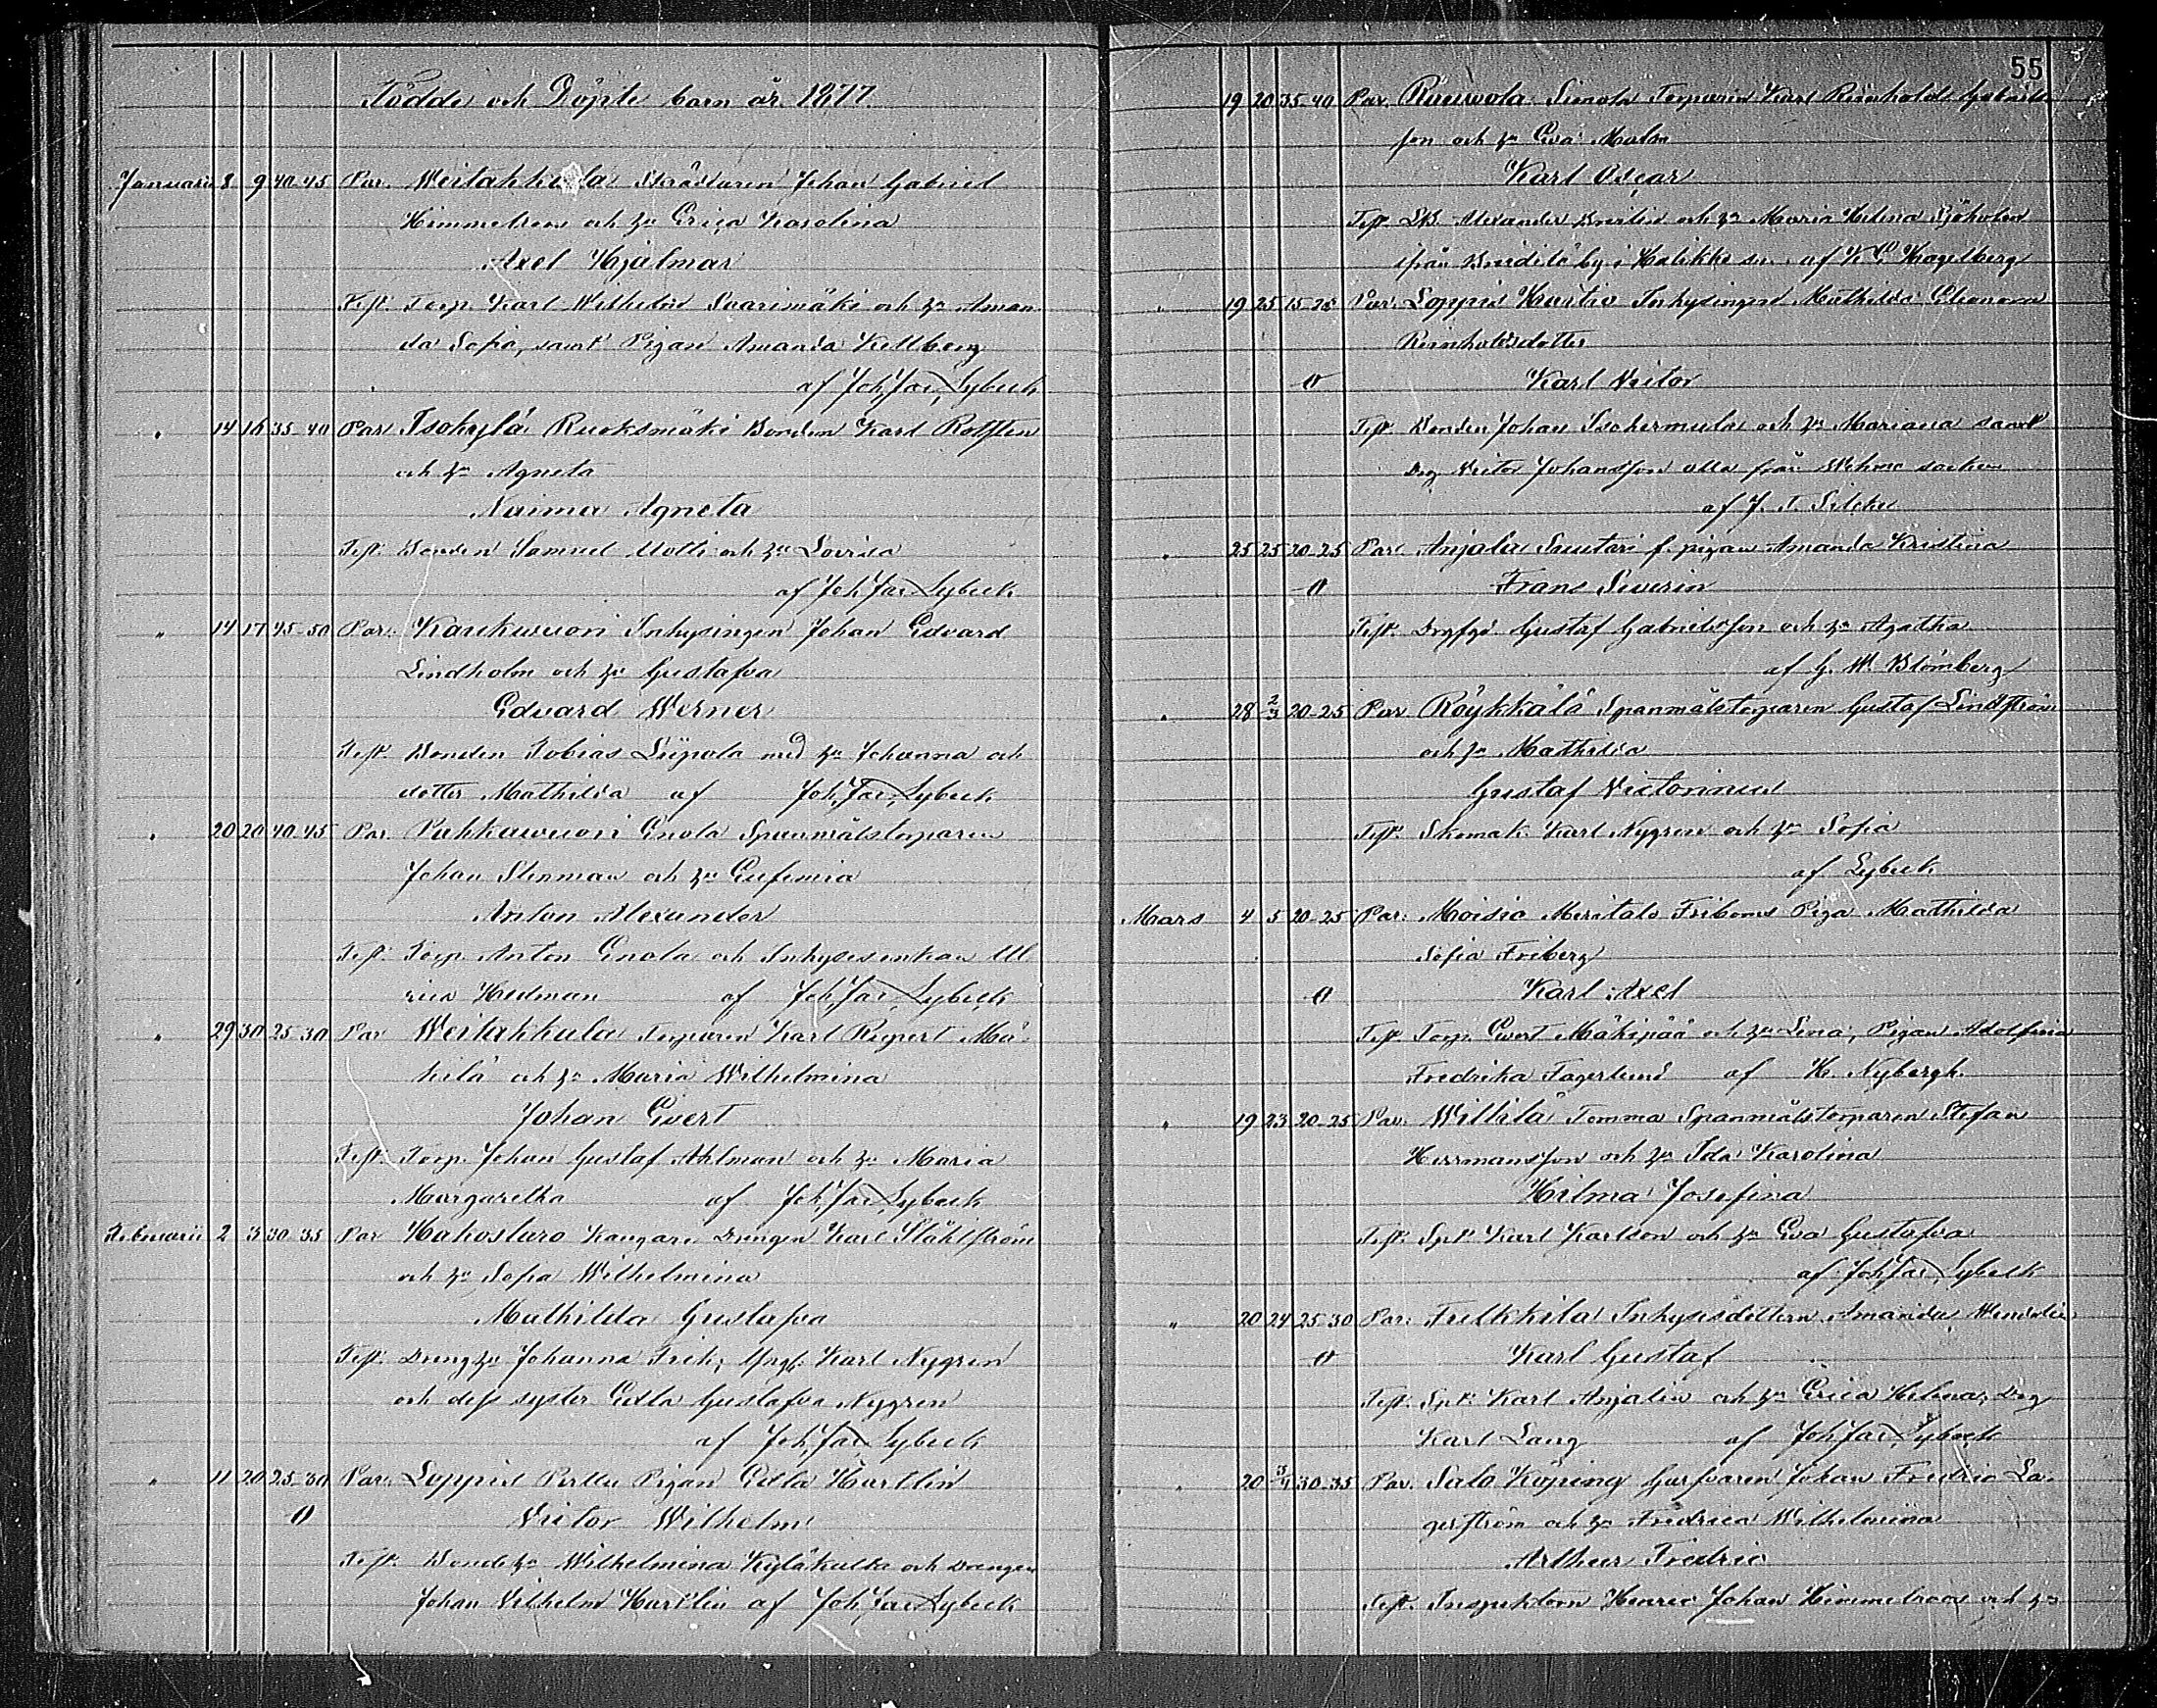 Födde och Döpte barn år 1877.
Januarii 8 9 40-45 Par. Weitakkala Skräddaren Johan Gabriel
Himmelroos och h:u Erica Karolina
Axel Hjalmar
Test. Torp. Karl Wilhelm Saarimäki och h:u Aman-
da Sofia, samt Pigan Amanda Kellberg
af Joh. Jac. Lybeck
" 14 16 35-40 Par. Isokylä Ruoksmäki Bonden Karl
och h:u Agneta
Naima Agneta
Test. Bonden Samuel Motti och h:u Lovisa
af Joh. Jac. Lybeck
" 14 17 45-50 Par. Karikuuori Inhysingen Johan Edvard
Lindholm och h:u Gustafva
Edvard Werner
Test. Bonden Tobias Liipola med h:u Johanna och
dotter Mathilda af Joh. Jac. Lybeck
" 20 20 40-45 Par. Pukkawuori Enola Spannmålstorparen
Johan Stenman och h:u Eufemia
Anton Alexander
Test. Torp. Anton Enola och Inhysesenkan Ul
rica Hedman af Joh. Jac. Lybeck
" 29 30 25-30 Par Weitakkala Torparen Karl Rupert Mä-
kilä och h:u Maria Wilhelmina
Johan Evert
Test. Torp. Johan Gustaf Ahlman och h:u Maria
Margaretha af Joh. Jac. Lybeck
Februarii 2 3 30-35 Par Hakostaro Kangare Drängen Karl Ståhlström
och h:u Sofia Wilhelmina
Mathilda Gustafva
Test. Dräng h:u Johanna Karl Nygren
och dess syster Edla Gustafva Nygren
af Joh. Jac. Lybeck
" 11 20 25-30 Par. Loppis Perttu Pigan Edla Hartlin
0 Victor Wilhelm
Test. Bonde h:u Wilhelmina Kyläkulta och Drängen
Johan Vilhelm Hartlin af Joh. Jac. Lybeck
55
19 20 35-40 Par. Ruuwola Simola Torparen Karl Reinhold Gabriels
son och h:u Eva Malm
Karl Oscar
Test. Alexander och h:u Maria Helena Sjöholm
ifrån by i Halikko sn. af K. G. Hagelberg
" 19 25 15-25 Par. Loppis Inhysingen Mathilda Eleonora
Reinholdsdotter
0 Karl Victor
Test. Bonden Johan Isohermula och h:u Mariana samt
Drg Victor Johansson alla från Wehmo socken
af J. T.
" 25 25 20-25 Par. Anjala Suutari f. pigan Amanda Kristina
0 Frans Severin
Test. Gustaf Gabrielsson och h:u Agatha
af G. W. Blomberg
" 28 2/3 20-25 Par Röykkälä Spannmålstorparen Gustaf Lindström
och h:u Mathilda
Gustaf Victorinus
Test. Skomak. Karl Nygren och h:u Sofia
af Lybeck
Mars 4 5 20-25 Par. Moisio Meritalo Piga Mathilda
Sofia Friberg
0 Karl Axel
Test. Torp. Evert Mäkipää och h:u Lena, Pigan Adolfina
Fredrika Fagerlund af H. Nybergh.
" 19 23 20-25 Par. Wiltilä Tomma Spanmålstorparen Stefan
Hermansson och h:u Ida Karolina
Hilma Josefina
Test. Spt. Karl Karlsson och h:u Eva Gustafva
af Joh. Jac. Lybeck
" 20 24 25-30 Par. Fulkkila Inhysesdottern Amanda
0 Karl Gustaf
Test. Spt. Karl Anjalin och h:u Erica Helena, Drg
Karl Lang af Joh. Jac. Lybeck
" 20 3/4 30-35 Par. Salo Köping Garfvaren Johan Fredric La-
gerström och h:u Fredrica Wilhelmina
Arthur Fredric
Test. Inspektorn Henric Johan Himmelroos och h:u